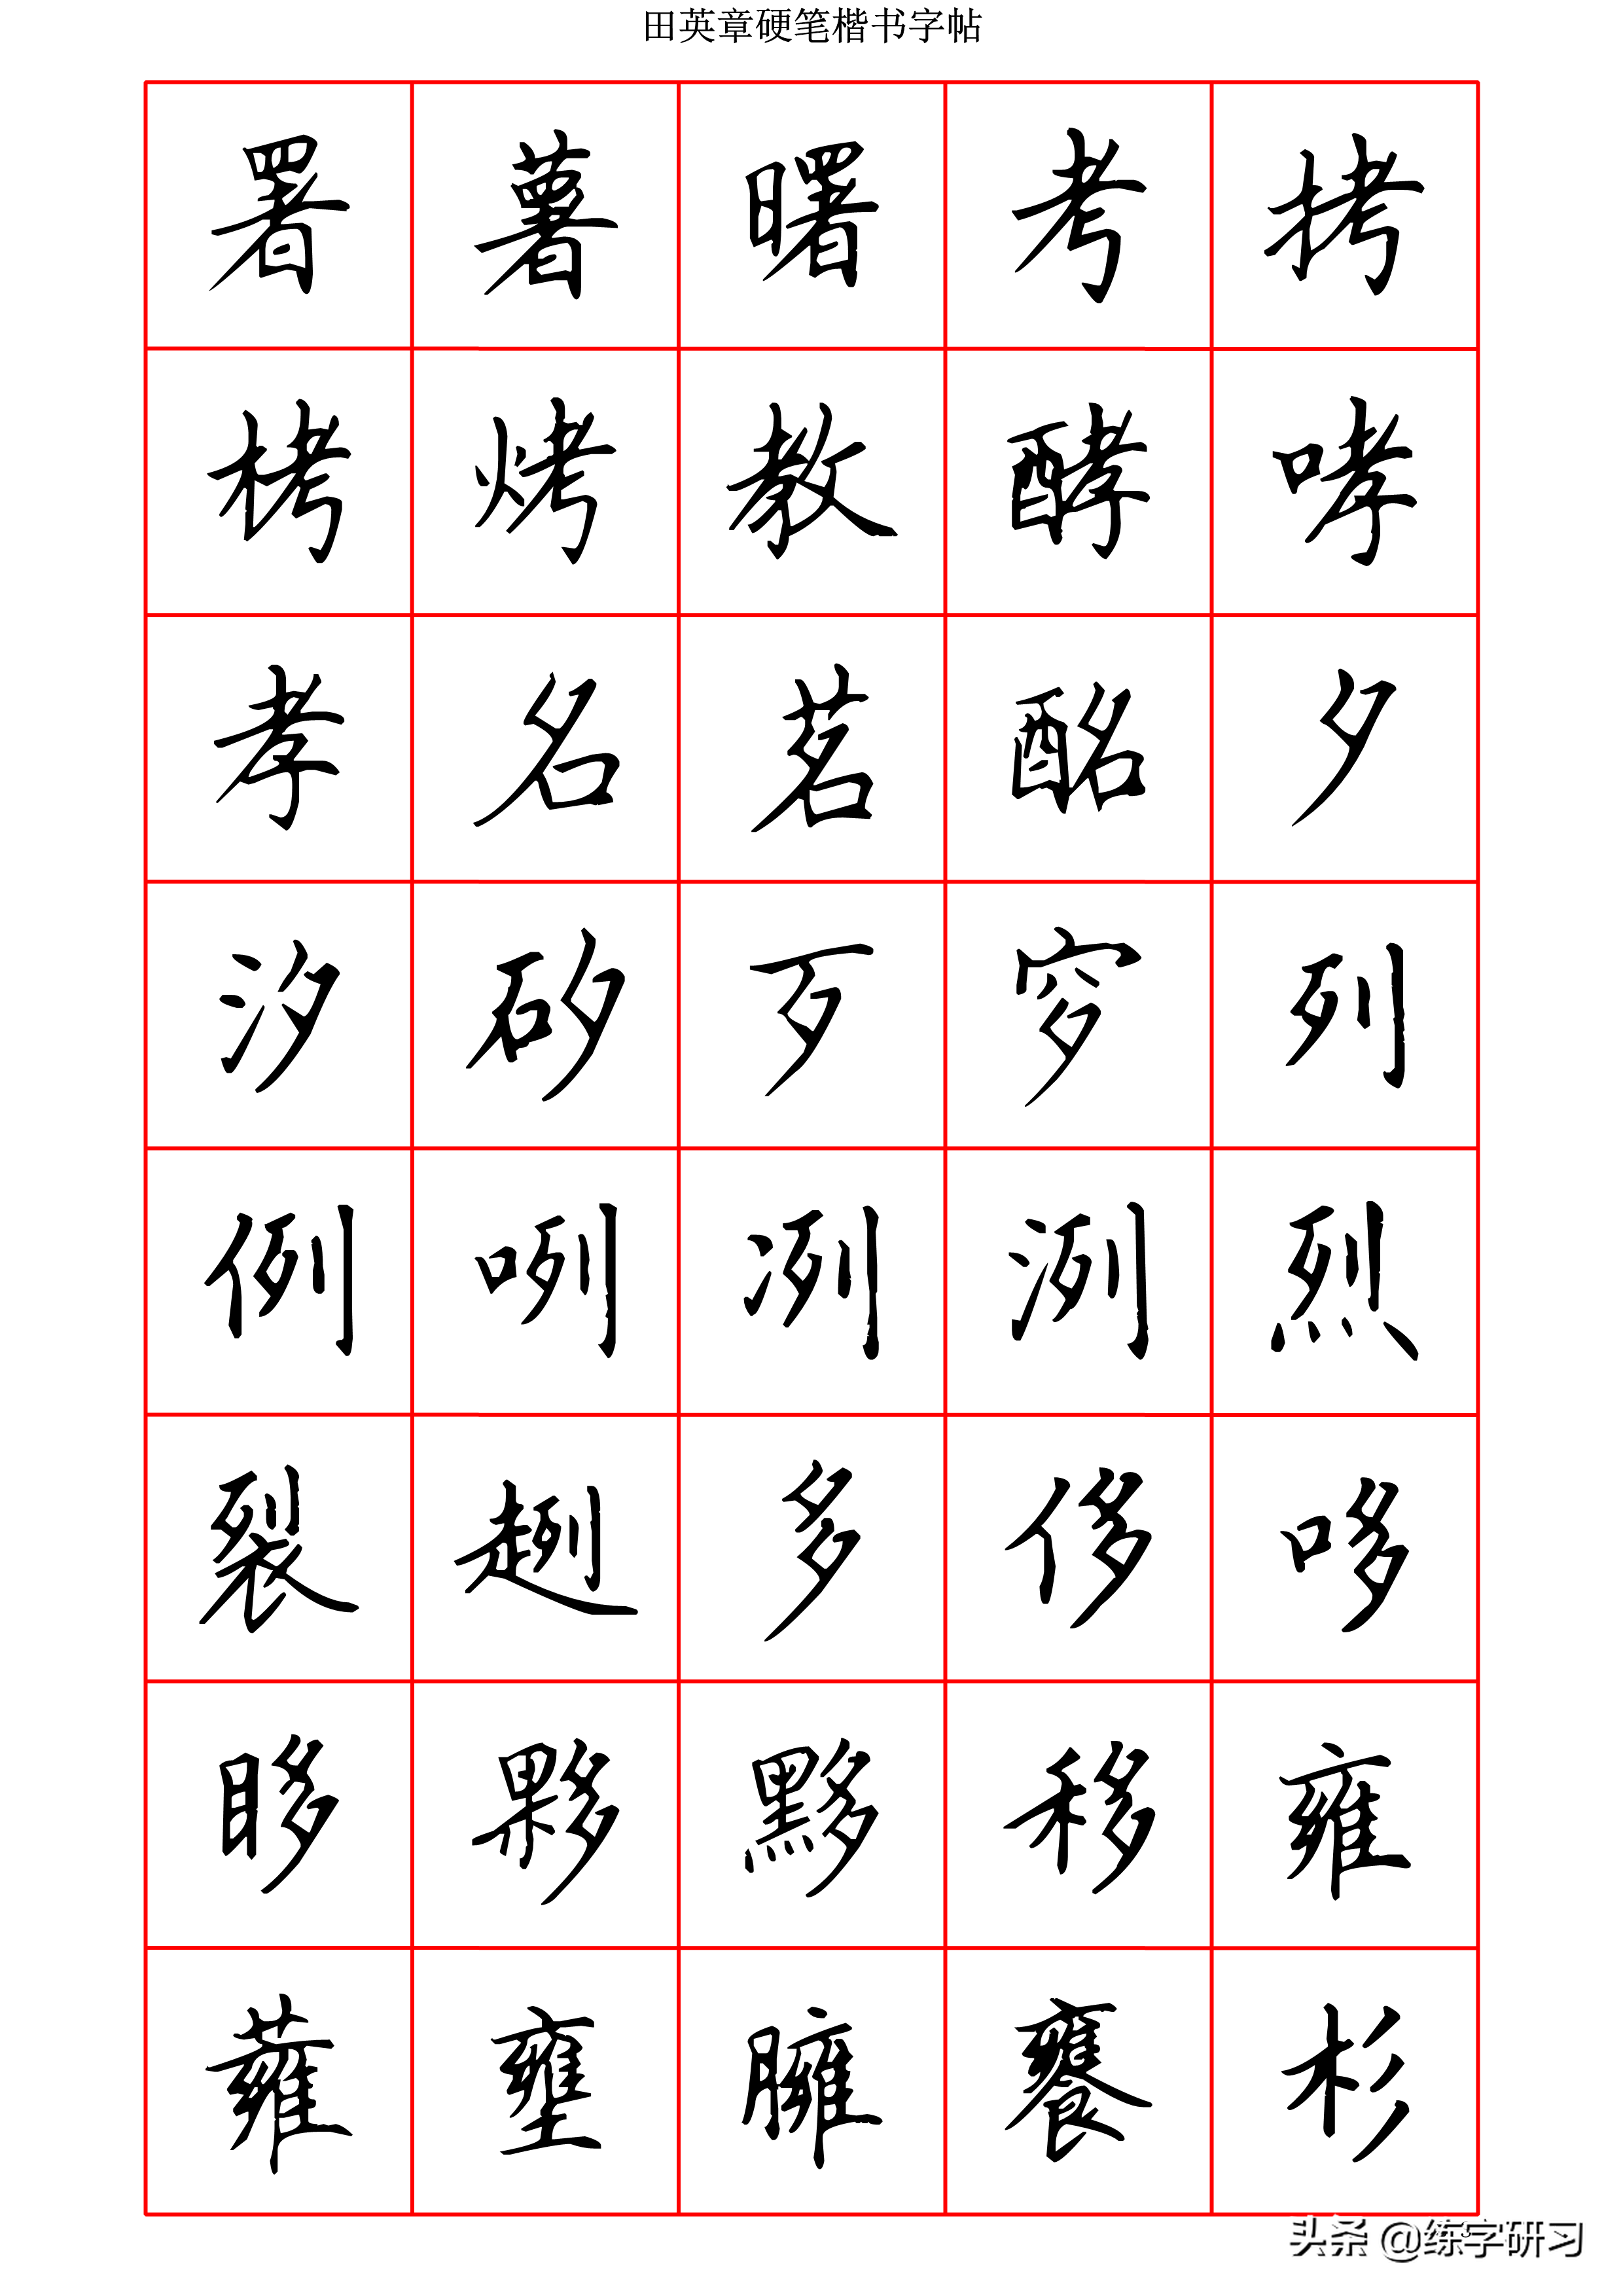 田英章硬笔楷书字帖
署薯曙考拷
栲烤教酵哮
孝名茗酩夕
汐矽歹穸列
例咧冽洌烈
裂趔多侈哆
眵夥黟移雍
蕹壅臃饔杉
头条 @练字研习